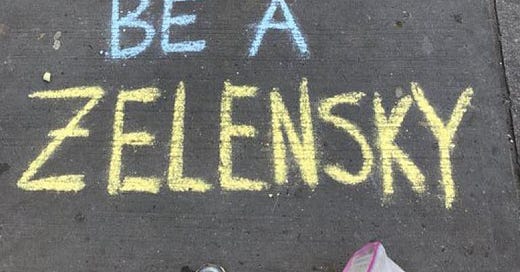 BE A
ZELENSKY